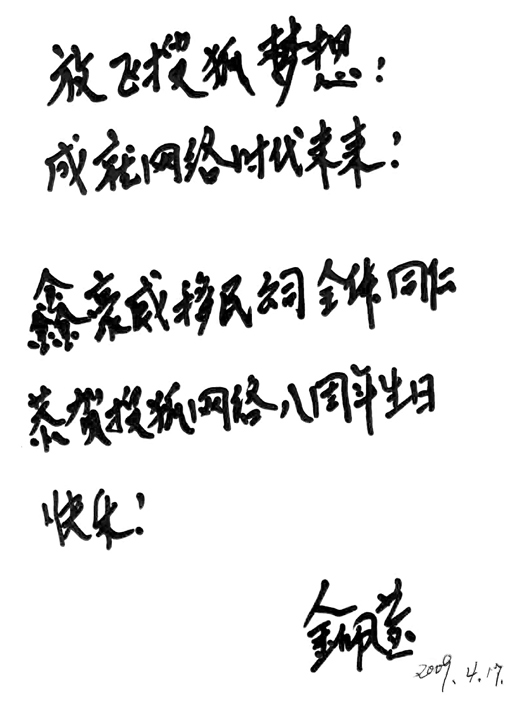 放飞搜狐梦想！
成就网络时代未来！
鑫襄威移民公司全体同仁
恭贺搜狐网络八周年生日
快乐！
2009.4.17.